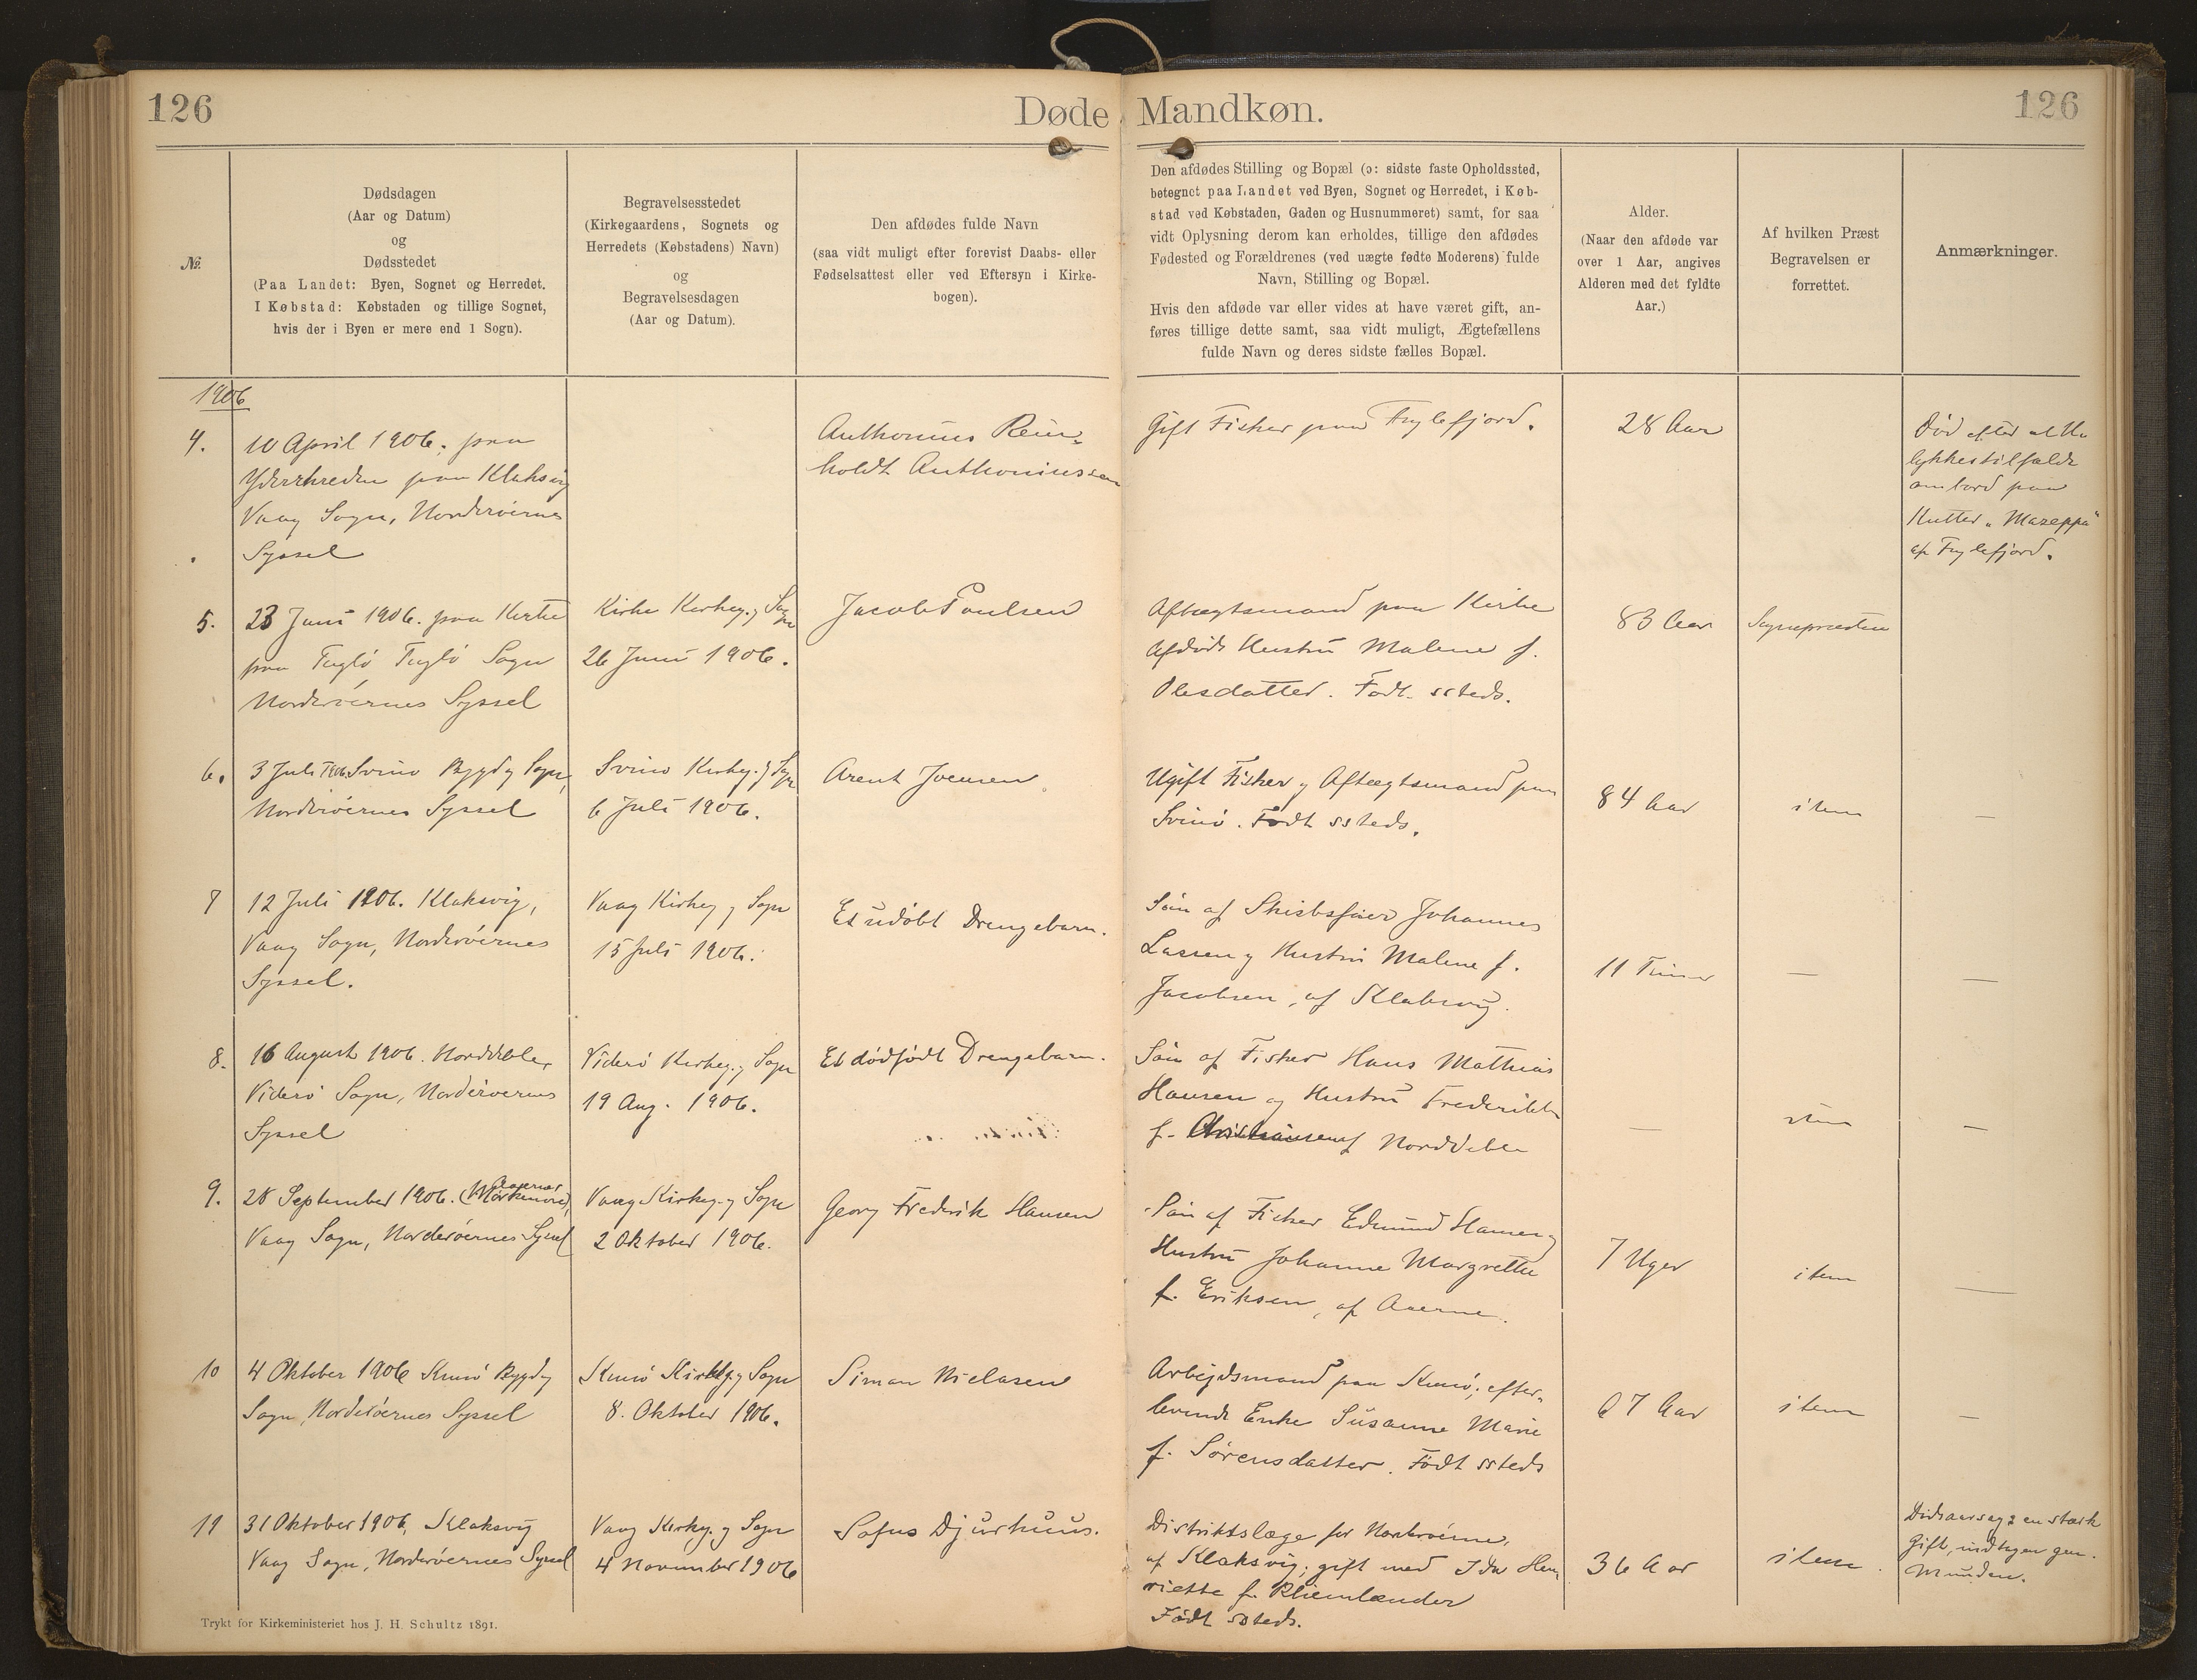 126
Døde
Mandkøn.
126
№
Dødsdagen
(Aar og Datum)
og
Dødsstedet
(Paa Landet: Byen, Sognet og Herredet.
I Købstad: Købstaden og tillige Sognet,
hvis der i Byen er mere end 1 Sogn).
Begravelsesstedet
(Kirkegaardens, Sognets og
Herredets (Købstadens) Navn)
og
Begravelsesdagen
(Aar og Datum).
Den afdødes fulde Navn
(saa vidt muligt efter forevist Daabs- eller
Fødselsattest eller ved Eftersyn i Kirke-
bogen).
Den afdødes Stilling og Bopæl (ɔ: sidste faste Opholdssted,
betegnet paa Landet ved Byen, Sognet og Herredet, i Køb-
stad ved Købstaden, Gaden og Husnummeret) samt, for saa
vidt Oplysning derom kan erholdes, tillige den afdødes
Fødested og Forældrenes (ved uægte fødte Moderens) fulde
Navn, Stilling og Bopæl.
Hvis den afdøde var eller vides at have været gift, an-
føres tillige dette samt, saa vidt muligt, Ægtefællens
fulde Navn og deres sidste fælles Bopæl.
Alder.
(Naar den afdøde var
over 1 Aar, angives
Alderen med det fyldte
Aar.)
Af hvilken Præst
Begravelsen er
forrettet.
Anmærkninger.
1906
4.
10 April 1906. paa
paa Klaksvig
Vaag Sogn, Norderöernes
Syssel
Anthonius Rein-
holdt Anthoniussen
Gift Fisker paa Fuglefjord.
28 Aar
Död efter et Uu
lykkestilfælde
ombord paa
Kutter „Mazeppa"
af Fuglefjord.
5.
23 Juni 1906. paa Kirke
paa Fuglö Fuglö Sogn
Norderöernes Syssel
Kirke Kirkeg. og Sogn
26 Juni 1906.
Jacob Poulsen
Aftægtsmand paa Kirke
Afdöde Hustru Malene f.
Olesdatter. Födt ssteds.
83 Aar
Sognepræsten
6.
3 Juli 1906. Svinö Bygd og Sogn,
Norderöernes Syssel
Svinö Kirkeg. og Sogn
6 Juli 1906.
Arent Joensen
Ugift Fisker og Aftægtsmand paa
Svinö. Födt ssteds.
84 Aar
item
—
7
12 Juli 1906. Klaksvig,
Vaag Sogn, Norderöernes
Syssel.
Vaag Kirkeg. og Sogn
15 Juli 1906.
Et udöbt Drengebarn.
Sön af Skibsförer Johannes
Lassen og Hustru Malene f.
Jacobsen, af Klaksvig.
11 Timer
—
—
8.
16 August 1906. Norddeble,
Viderö Sogn, Norderöernes
Syssel
Viderö Kirkeg. og Sogn
19 Aug. 1906.
Et dödfödt Drengebarn.
Sön af Fisker Hans Mathias
Hansen og Hustru Frederikke
f. af Norddeble
—
item
—
9.
28 September 1906. (Mörkenöre),
Vaag Sogn, Norderöernes Syssel
Vaag Kirkeg. og Sogn
2 Oktober 1906.
Georg Frederik Hansen
Sön af Fisker Edmund Hansen og
Hustru Johanne Margrethe
f. Eriksen, af Aaerne.
7 Uger
item
—
10
4 Oktober 1906 Kunö Bygd og
Sogn, Norderöernes Syssel
Kunö Kirkeg. og Sogn
8. Oktober 1906.
Simon Nielasen
Arbejdsmand paa Kunö; efter-
levende Enke Susanne Marie
f. Sörensdatter. Födt ssteds
67 Aar
item
—
11
31 Oktober 1906, Klaksvig
Vaag Sogn, Norderöernes Syssel
Vaag Kirkeg. og Sogn
4 November 1906
Sofus Djurhuus.
Distriktslæge for Norderöerne,
af Klaksvig; gift med Ida Hen-
riette f. Rhiemlænder
Födt ssteds.
36 Aar
item
Dödsaarsag: en stærk
Gift, indtagen gen.
Munden.
Trykt for Kirkeministeriet hos J. H. Schultz 1891.